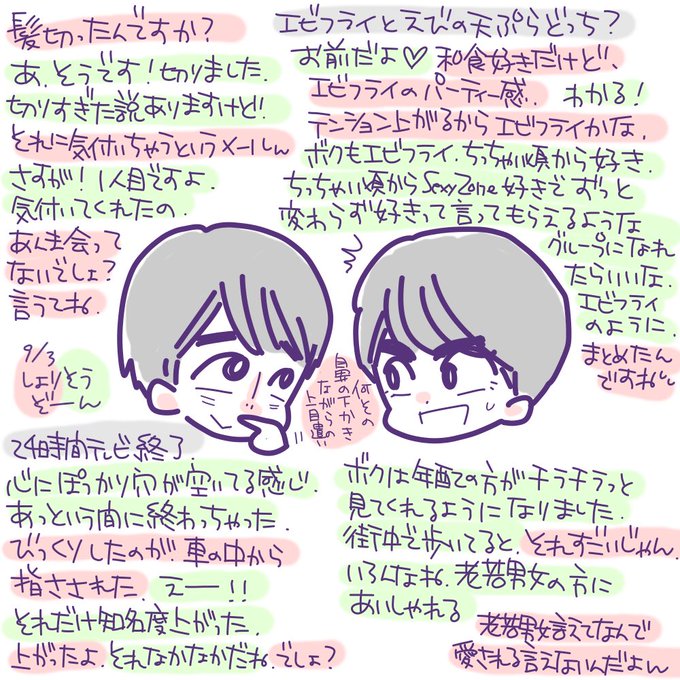 髪切ったんですか？
あ、そうです！切りました。
切りすぎた説ありますけど！
それに気付いちゃうというメールん
さすが！1人目ですよ。
気付いてくれたの。
あんま会って
ないでしょ？
言うてね。
9/3
しょりそう
ぞーん
エビフライとえびの天ぷらどっち？
お前だよ♡ 和食好きだけど、
エビフライのパーティー感。 わかる！
テンション上がるからエビフライかな。
ボクもエビフライ。ちっちゃい頃から好き。
ちっちゃい頃からSexyZone好きでずっと
変わらず好きって言ってもらえるような
グループになれ
たらいいな。
エビフライ
のように。
まとめたん
ですね〜
何その
鼻の下かき
ながらの
上目遣い
24時間テレビ終了
心にぽっかり穴が空いてる感じ。
あっという間に終わっちゃった。
びっくりしたのが、車の中から
指さされた。えー！！
それだけ知名度上がった。
上がったよ。それなかなかだね。でしょ？
ボクは年配の方がチラチラっと
見てくれるようになりました。
街中で歩いてると。それすごいじゃん。
いろんなね。老若男女の方に
あいしゃれる
老若男女言えてなんで
愛される言えないんだよん